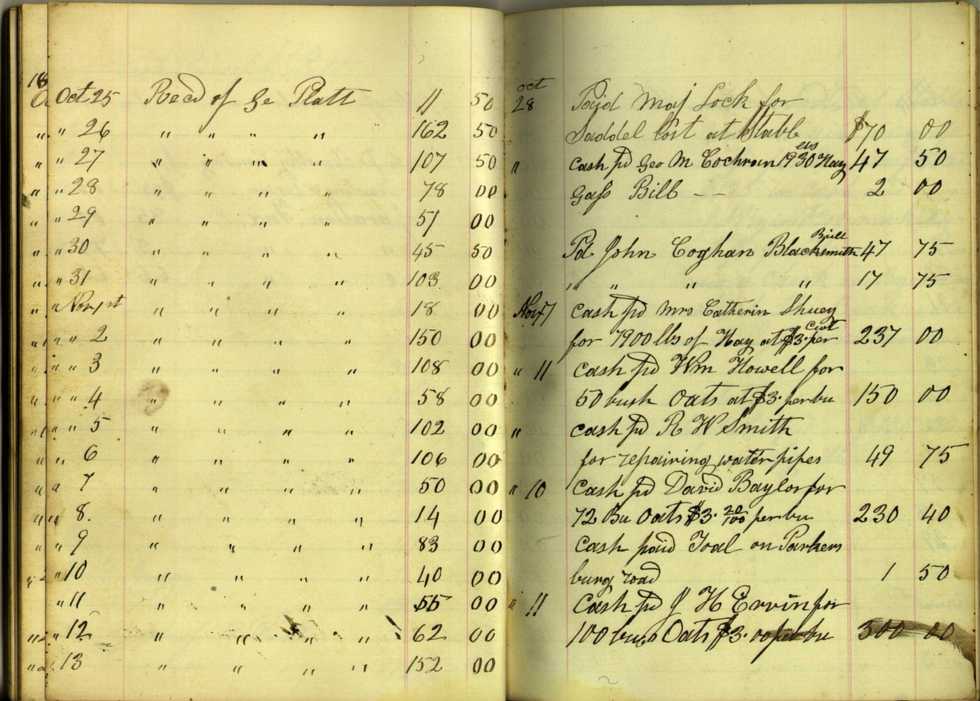 18
Oct 25 Recd of Ge Platt 11 50
" " 26 " " " " 162 50
" " 27 " " " " 107 50
" " 28 " " " " 78 00
" " 29 " " " " 51 00
" " 30 " " " " 45 50
" " 31 " " " " 103 00
" " Nov 1st " " " " 18 00
" " " 2 " " " " 150 00
" " " 3 " " " " 108 00
" " " 4 " " " " 58 00
" " " 5 " " " " 102 00
" " 6 " " " " 106 00
" " 7 " " " " 50 00
" " 8. " " " " 14 00
" " 9 " " " " 83 00
" 10 " " " " 40 00
" 11 " " " " 55 00
" " 12 " " " " 62 00
" " 13 " " " " 152 00
oct
28 Payd Maj Lock for
Saddel lost at Stable $70 00
" cash pd Geo M Cochran 1930 lbs Hay 47 50
Gass Bill — 2 00
Pd John Coghan Blacksmith Bill 47 75
" " " " 17 75
Nov 7 cash pd mrs Catherin Shuey
for 7900 lbs of Hay at $3. per Cwt 237 00
" 11 cash pd Wm Howell for
50 bush oats at $3. per bu 150 00
" cash pd R W Smith
for repairing water pipes 49 75
" 10 Cash pd David Baylor for
72 Bu Oats $3. 20/100 per bu 230 40
Cash paid Toal on Parkers
burg road 1 50
" 11 Cash pd J H Ervin for
100 bus Oats $3.00 per bu 300 00